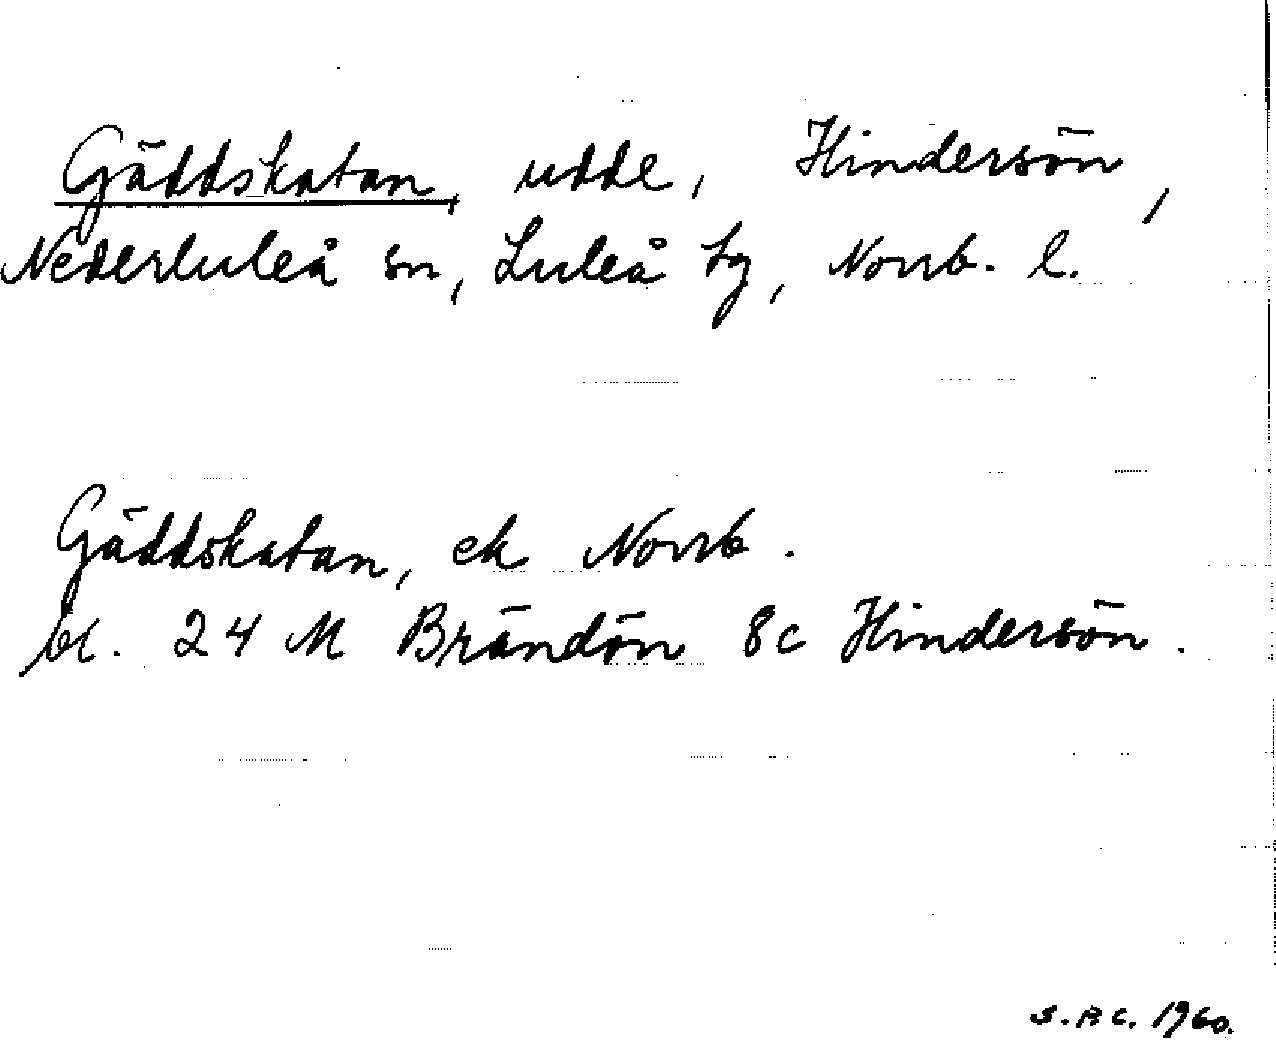 Gäddskatan, udde, Hindersön,
Nederluleå sn, Luleå tg, Norrb. l.
Gäddskatan, ek Norrb.
bl. 24 M Brändön 8c Hindersön.
S.B.C. 1960.